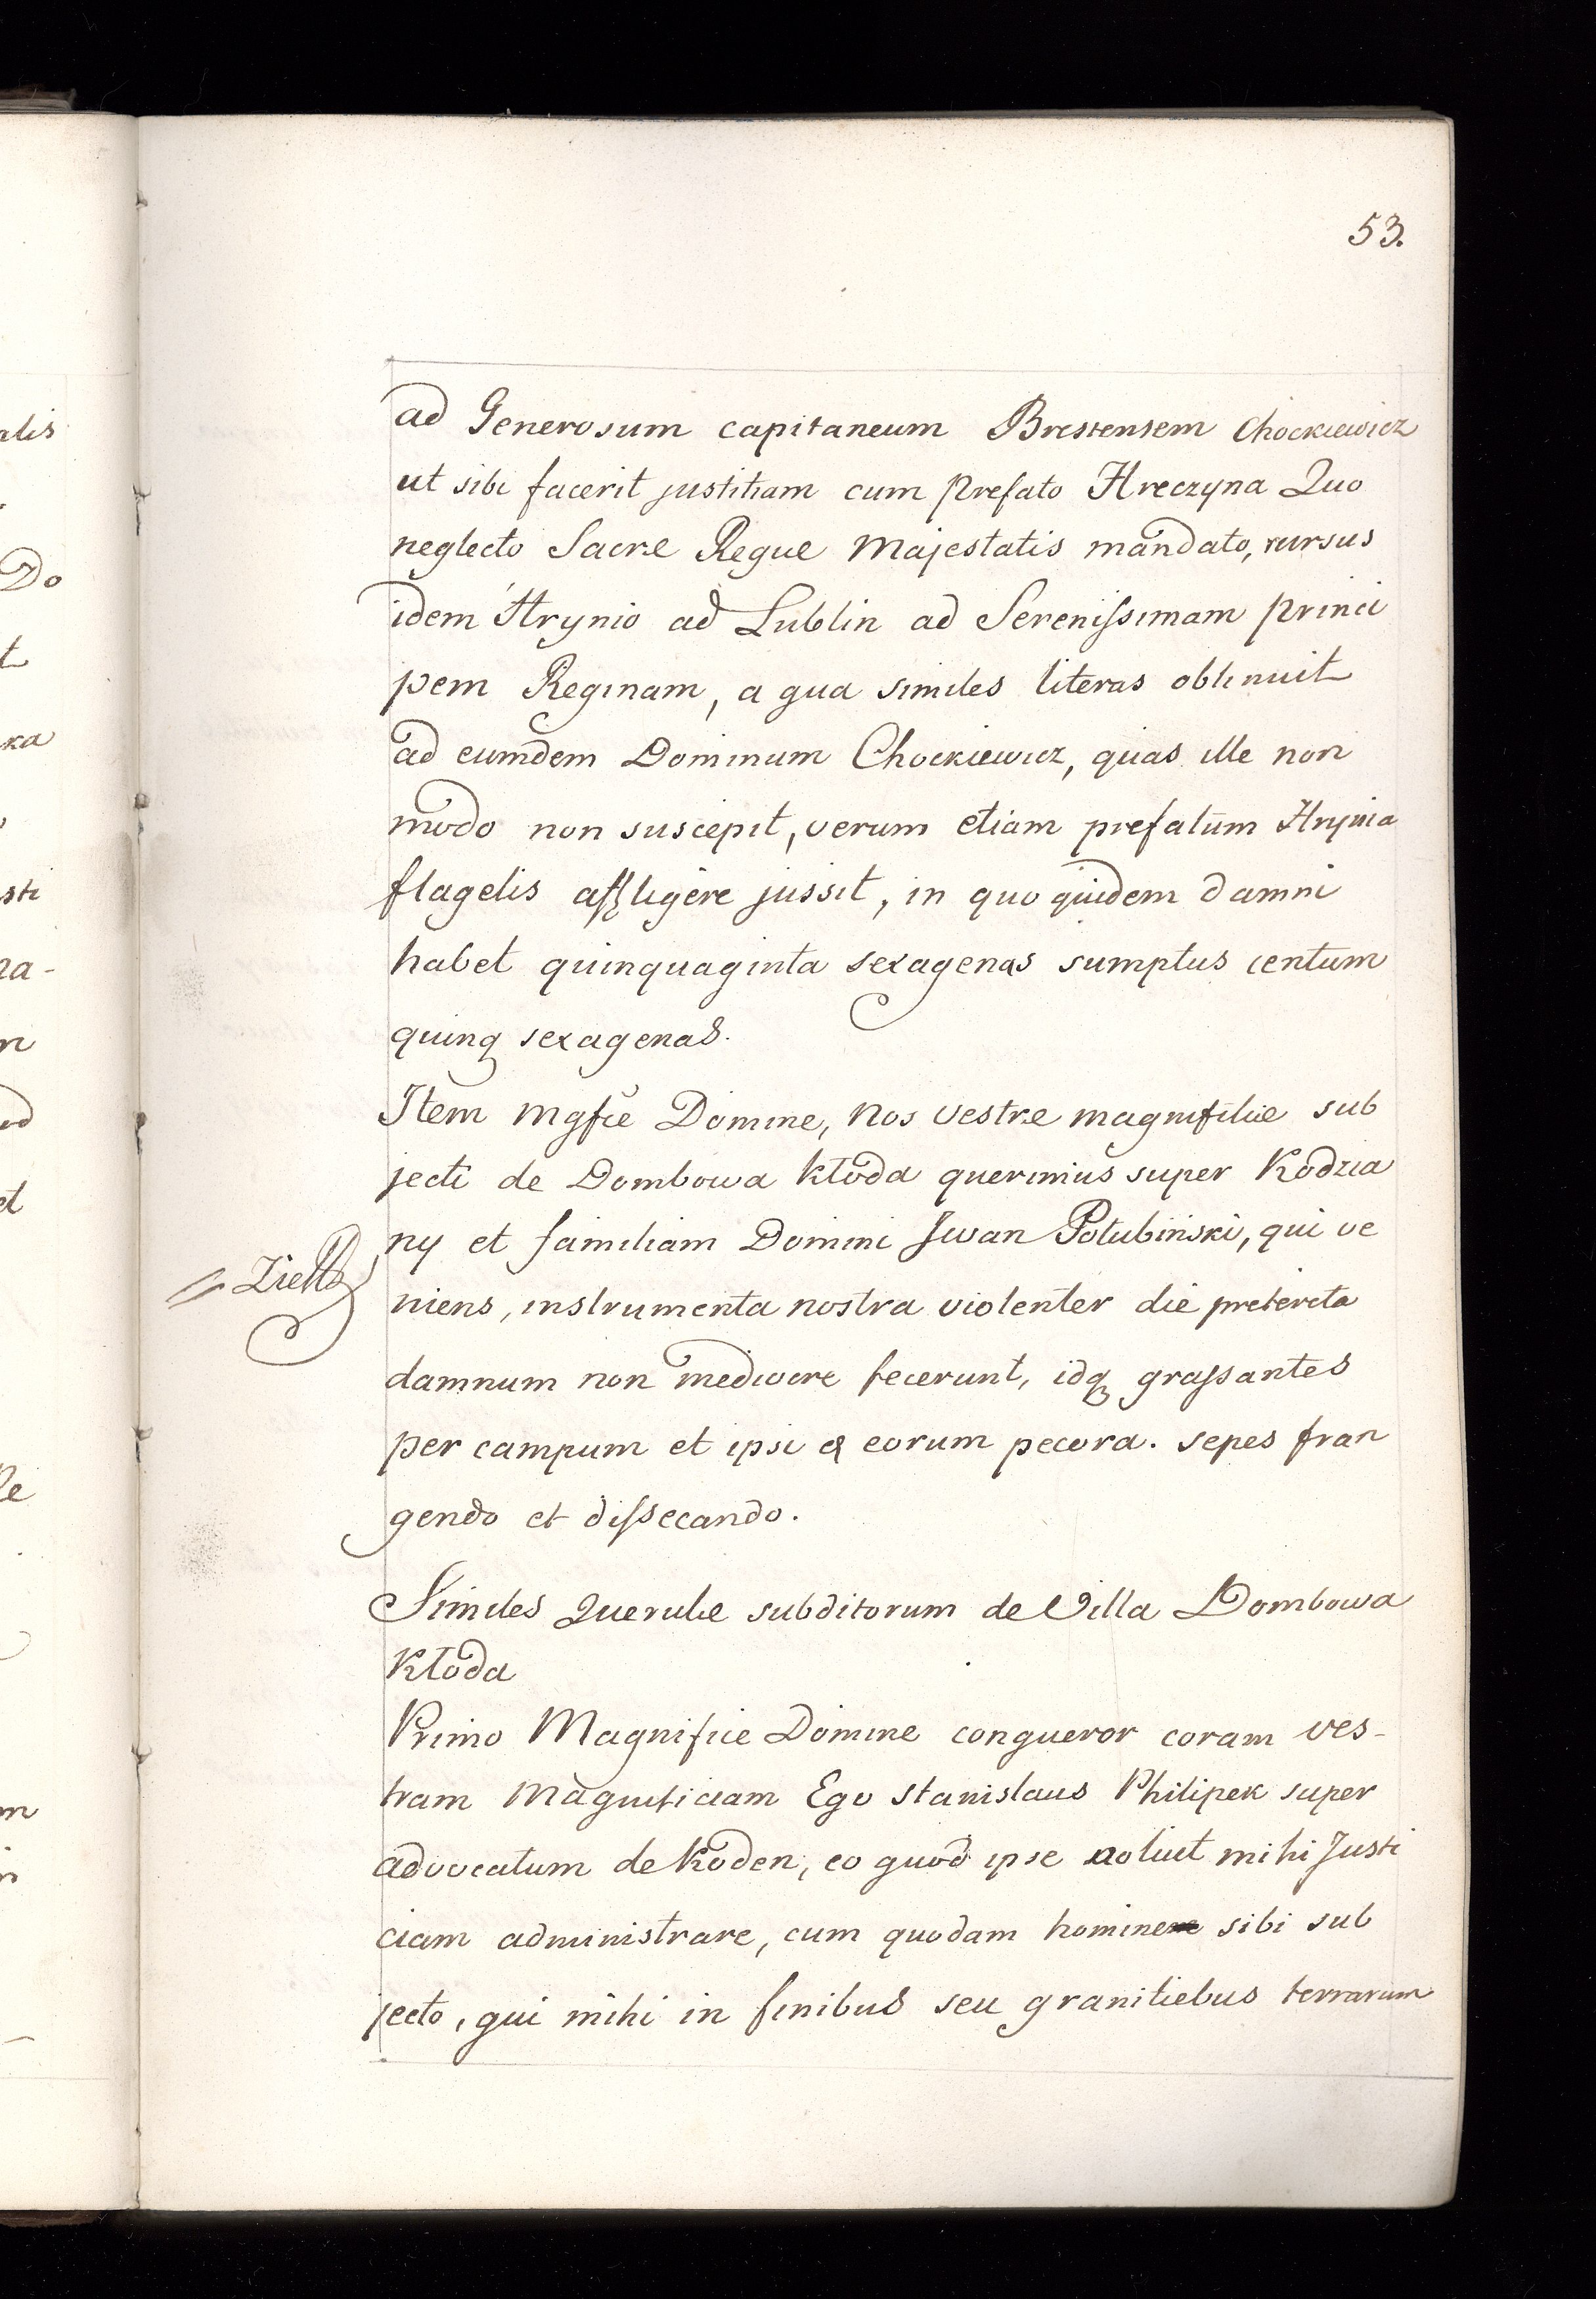 53.
ad Generosum capitaneum Brestensem Chockiewicz
ut sibi facerit justitiam cum prefato Hreczyna Quo
neglecto Sacre Regue Majestatis mandato, rursus
idem Hrynio ad Lublin ad Serenissimam princi
pem Reginam, a qua similes literas obtinuit
ad eumdem Dominum Chockiewicz, quas ille non
modo non suscepit, verum etiam prefatum Hrynia
flagelis affligere jussit, in quo quidem damni
habet quinquaginta sexagenas sumptus centum
quinq sexagenas.
Item mgfce Domine, nos vestre magnificie sub
jecti de Dombowa kłoda querimus super Kodzia
ny et familiam Domini Iwan Połubinski, qui ve
niens, instrumenta nostra violenter die preterita
damnum non mediocre fecerunt, idq grassantes
per campum et ipsi & eorum pecora. sepes fran
gendo et dissecando.
Similes Querule subditorum de Villa Dombowa
Kłoda
Primo Magnifice Domine conqueror coram ves-
tram Magnificiam Ego Stanislaus Philipek super
advocatum de Koden, eo quod ipse noluit mihi Justi
ciam administrare, cum quodam homine sibi sub
jecto, qui mihi in finibus seu granitiebus terrarum